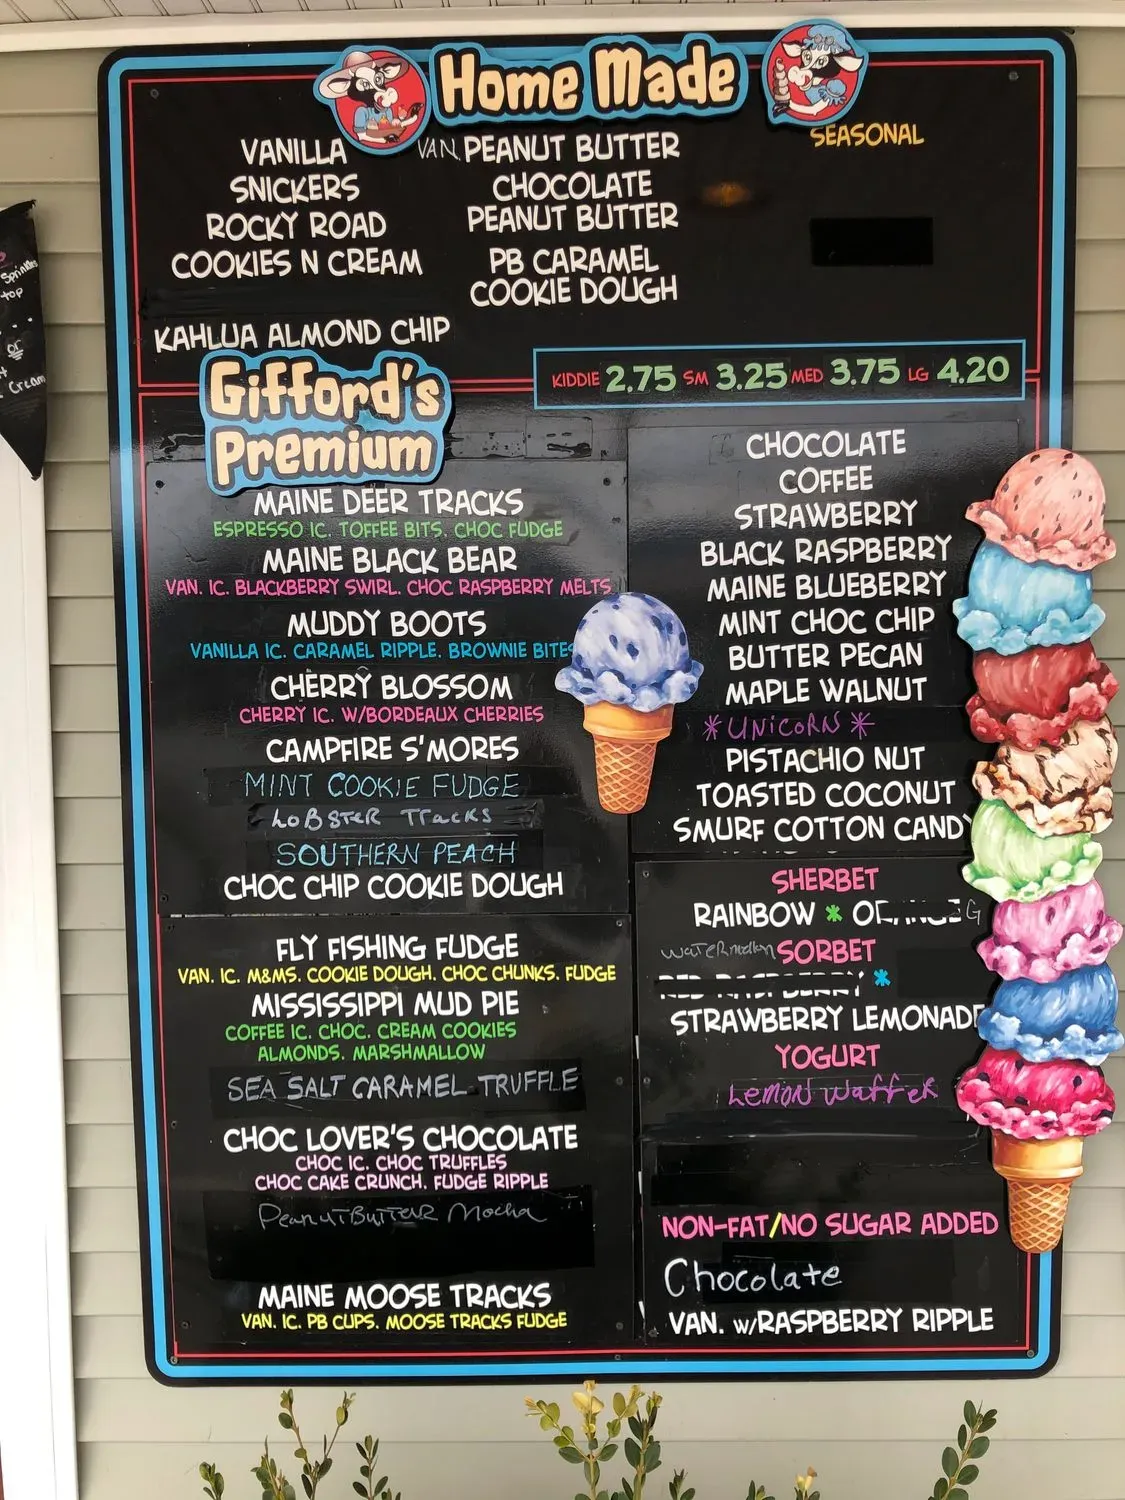 Home Made
VANILLA
SNICKERS
ROCKY ROAD
COOKIES N CREAM
KAHLUA ALMOND CHIP
VAN. PEANUT BUTTER
CHOCOLATE
PEANUT BUTTER
PB CARAMEL
COOKIE DOUGH
SEASONAL
KIDDIE 2.75 SM 3.25 MED 3.75 LG 4.20
Gifford's
Premium
MAINE DEER TRACKS
ESPRESSO IC. TOFFEE BITS. CHOC FUDGE
MAINE BLACK BEAR
VAN. IC. BLACKBERRY SWIRL. CHOC RASPBERRY MELTS
MUDDY BOOTS
VANILLA IC. CARAMEL RIPPLE. BROWNIE BITES
CHERRY BLOSSOM
CHERRY IC. W/BORDEAUX CHERRIES
CAMPFIRE S'MORES
MINT COOKIE FUDGE
LOBSTER TRACKS
SOUTHERN PEACH
CHOC CHIP COOKIE DOUGH
FLY FISHING FUDGE
VAN. IC. M&MS. COOKIE DOUGH. CHOC CHUNKS. FUDGE
MISSISSIPPI MUD PIE
COFFEE IC. CHOC. CREAM COOKIES
ALMONDS. MARSHMALLOW
SEA SALT CARAMEL TRUFFLE
CHOC LOVER'S CHOCOLATE
CHOC IC. CHOC TRUFFLES
CHOC CAKE CRUNCH. FUDGE RIPPLE
Peanut Butter Mocha
MAINE MOOSE TRACKS
VAN. IC. PB CUPS. MOOSE TRACKS FUDGE
CHOCOLATE
COFFEE
STRAWBERRY
BLACK RASPBERRY
MAINE BLUEBERRY
MINT CHOC CHIP
BUTTER PECAN
MAPLE WALNUT
*UNICORN*
PISTACHIO NUT
TOASTED COCONUT
SMURF COTTON CANDY
SHERBET
RAINBOW * ORANGE
watermelon SORBET
RED RASPBERRY *
STRAWBERRY LEMONADE
YOGURT
Lemon Waffer
NON-FAT/NO SUGAR ADDED
Chocolate
VAN. W/RASPBERRY RIPPLE
Sprinkles
top
or
Cream